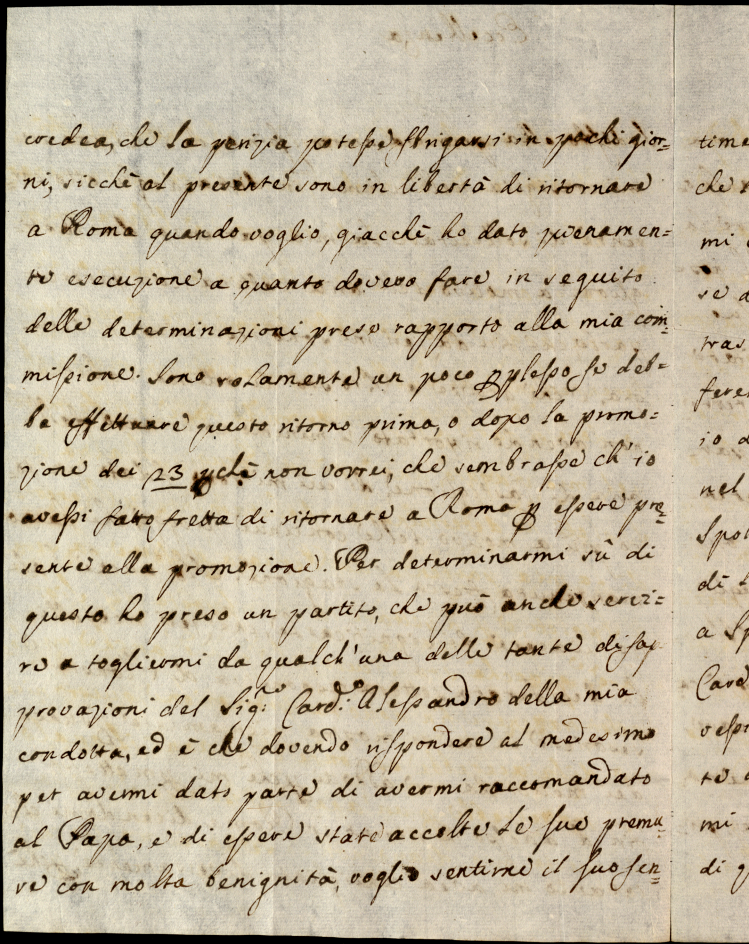 credea, che la perizia potesse sbrigarsi in pochi gior=
ni, sicchè al presente sono in libertà di ritornare
a Roma quando voglio, giacchè ho dato pienamen=
te esecuzione a quanto dovevo fare in seguito
delle determinazioni prese rapporto alla mia com=
missione. Sono solamente un poco pplesso se deb=
ba effettuare questo ritorno prima, o dopo la promo=
zione dei 23 pchè non vorrei, che sembrasse ch'io
avessi fatto fretta di ritornare a Roma p essere pre=
sente alla promozione. Per determinarmi sù di
questo ho preso un partito, che può anche servi=
re a togliermi da qualch'una delle tante disap
provazioni del Sig.e Card.e Alessandro della mia
condotta, ed è che dovendo rispondere al medesimo
per avermi dato parte di avermi raccomandato
al Papa, e di essere state accolte le sue premu
re con molta benignità, voglio sentirne il suo sen=
time
che
mi
se
tras
feren
io
nel
Spo
di
a Sp
Card
vesp
te
mi
di q